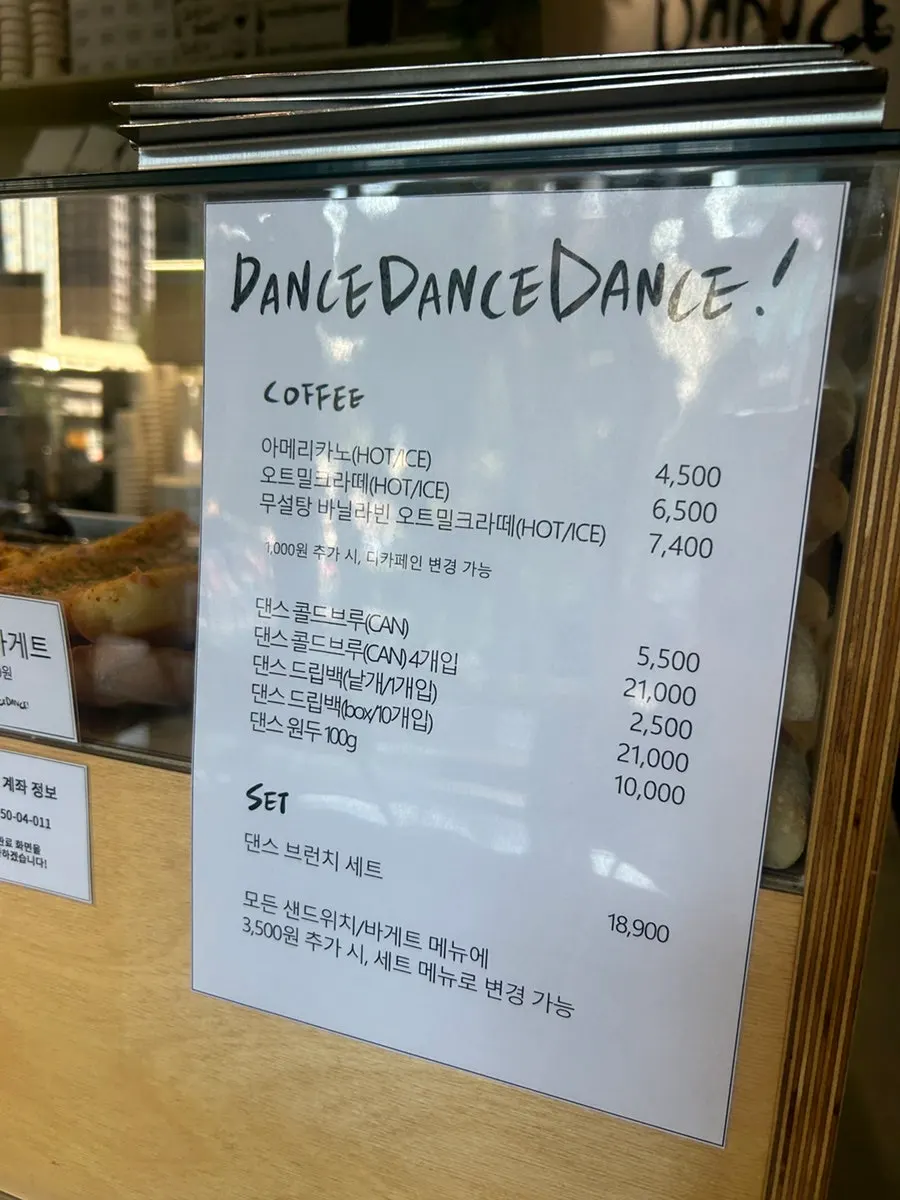 DANCE
DANCEDANCEDANCE!
COFFEE
아메리카노(HOT/ICE) 4,500
오트밀크라떼(HOT/ICE) 6,500
무설탕 바닐라빈 오트밀크라떼(HOT/ICE) 7,400
1,000원 추가 시, 디카페인 변경 가능
댄스 콜드브루(CAN) 5,500
댄스 콜드브루(CAN) 4개입 21,000
댄스 드립백(낱개/1개입) 2,500
댄스 드립백(box/10개입) 21,000
댄스 원두 100g 10,000
SET
댄스 브런치 세트 18,900
모든 샌드위치/바게트 메뉴에
3,500원 추가 시, 세트 메뉴로 변경 가능
바게트
원
계좌 정보
50-04-011
완료 화면을
하겠습니다!